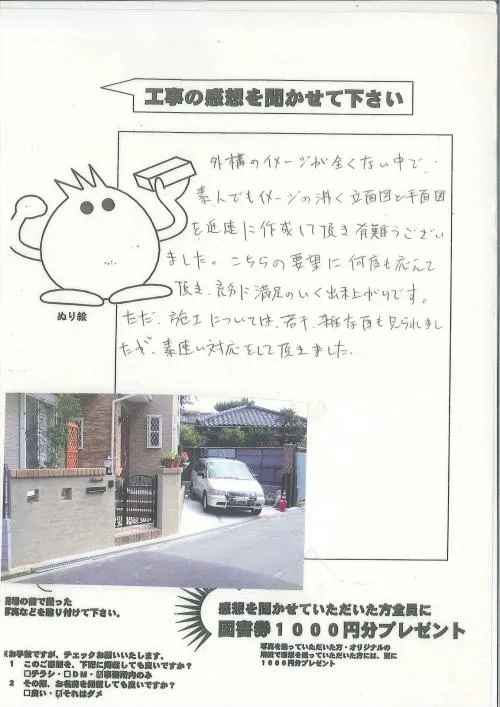 工事の感想を聞かせて下さい
外構のイメージが全くない中で、
素人でもイメージの沸く立面図と平面図
を迅速に作成して頂き有難うござい
ました。こちらの要望に何度も応えて
頂き、満足のいく出来上がりです。
ただ、施工については、若干、雑な面も見られまし
たが、素速い対応をして頂きました。
ぬり絵
現場の前で撮った
写真などを貼り付けて下さい。
感想を聞かせていただいた方全員に
図書券1000円分プレゼント
写真を送っていただいた方・オリジナルの
用紙で感想を送っていただいた方には、更に
1000円分プレゼント
※お手数ですが、チェックお願いいたします。
1 このご感想を、下記に掲載しても良いですか?
□チラシ・□DM・☑事務所内のみ
2 その際、お名前を掲載しても良いですか?
□良い・☑それはダメ